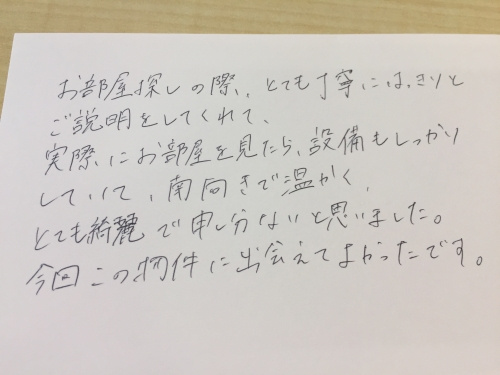 お部屋探しの際、とても丁寧にはきりと
ご説明をしてくれて、
実際にお部屋を見たら、設備もしっかり
していて、南向きで温かく、
とても綺麗で申し分ないと思いました。
今回この物件に出会えてよかったです。